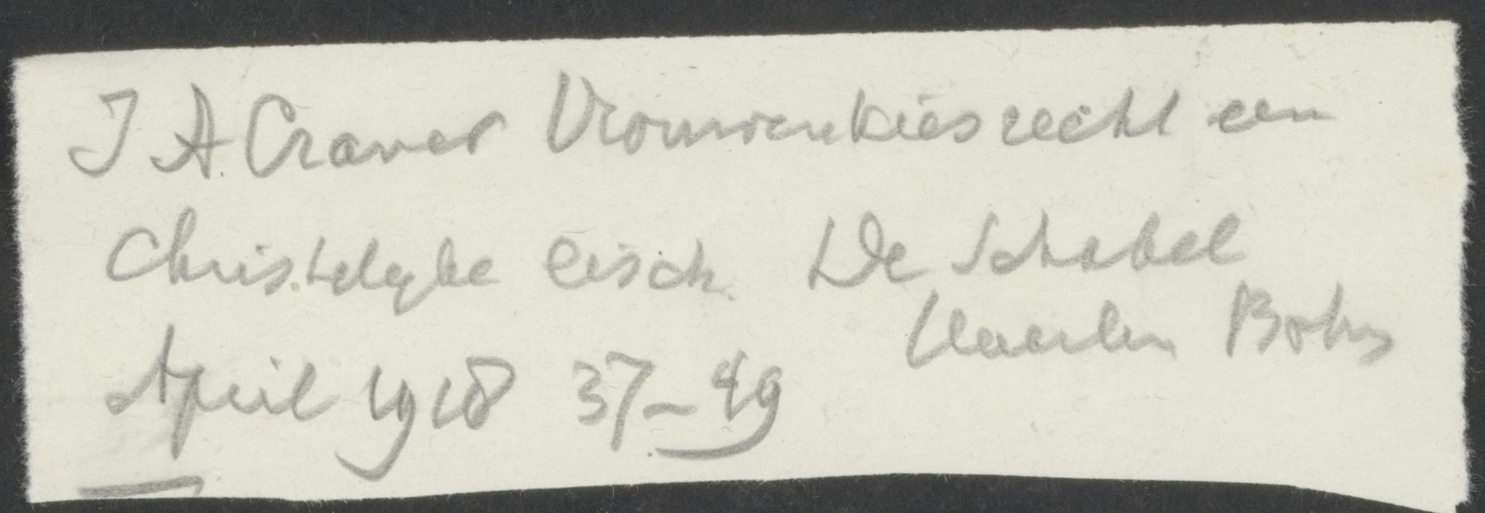 J A. Cramer Vrouwenkiesrecht een
Christelyke eisch. De Schakel
Haarlem Bohn
April 1918 37–49